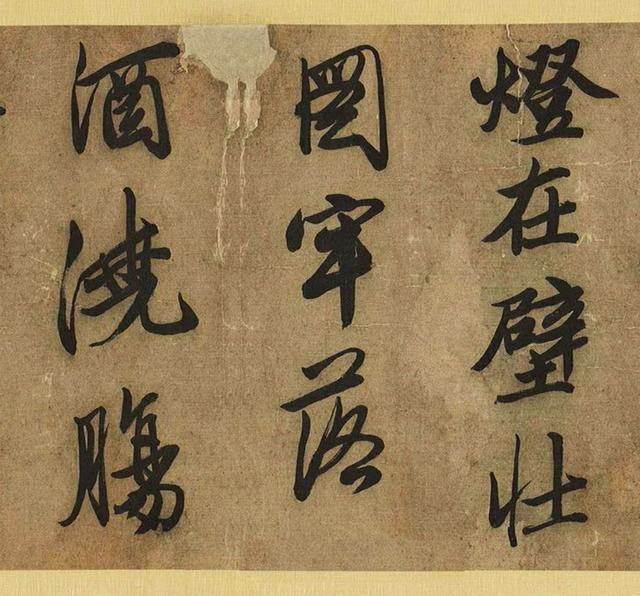 燈在壁壯
圖牢落
酒澆腸